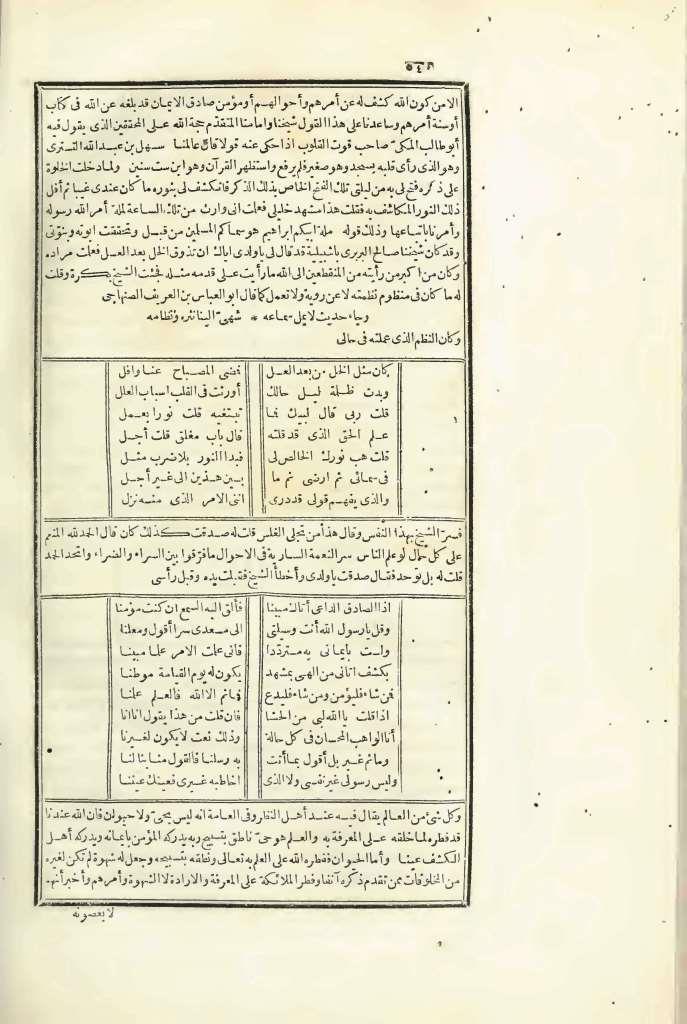 ٥٤٠
الا من كون الله كشف له عن أمرهم وأحوالهم أو مؤمن صادق الايمان قد بلغه عن الله فى كتاب
أوسنة أمرهم وساعدنا على هذا القول شيخنا وامامنا المتقدّم حجة الله على المحققين الذى يقول فيه
أبو طالب المكىّ صاحب قوت القلوب اذا حكى عنه قولا قال عالمنا سهل بن عبد الله التسترى
وهو الذى رأى قلبه يسجد وهو صغير فلم يرفع واستظهر القرآن وهو ابن ست سنين ولما دخلت الخلوة
على ذكره فتح لى به من ليلتى تلك الفتح الخاص بذلك الذكر فانكشف لى بنوره ما كان عندى غيبا ثم أفل
ذلك النور المكاشف به فقلت هذا مشهد خليلى فعلمت انى وارث من تلك الساعة لملة أمر الله رسوله
وأمرنا باتباعها وذلك قوله ملة أبيكم ابراهيم هو سماكم المسلمين من قبل وتحققت ابوته وبنوّتى
وقد كان شيخنا صالح البربرى باشبيلية قد قال لى ياولدى اياك ان تذوق الخل بعد العسل فعلمت مراده
وكان من اكبر من رأيته من المنقطعين الى الله ما رأيت على قدمه مثله فجئت الشيخ بكرة وقلت
له ما كان فى منظوم نظمته لا عن روية ولا تعمل كما قال ابو العباس بن العريف الصنهاجى
وجاء حديث لا يمل سماعه * شهىّ الينا نثره ونظامه
وكان النظم الذى عملته فى حالى
كان مثل الخل من بعد العسل قضى المصباح عنا وافل
وبدت ظلمة ليل حالك أورثت فى القلب اسباب العلل
قلت ربى قال لبيك فما تبتغيه قلت نورا بعمل
علم الحق الذى قد قلته قال باب مغلق قلت أجل
قلت هب نورك الخالص لى فبدا النور بلا ضرب مثل
فى سمائى ثم ارضى ثم ما بين هذين الى غير أجل
والذى يفهم قولى قد درى اننى الامر الذى منه نزل
فسرّ الشيخ بهذا النفس وقال هذا من تجلى الغلس قلت له صدقت كذلك كان قال الحمد لله المنعم
على كل حال لو علم الناس سر النعمة السارية فى الاحوال ما فرّقوا بين السراء والضراء واتحد الحمد
قلت له بل توحد فقال صدقت ياولدى وأخطأ الشيخ فقبلت يده وقبل رأسى
اذا الصادق الداعى أتاك مبينا فألق اليه السمع ان كنت مؤمنا
وقل يارسول الله أنت وسيلتى الى مسعدى سرا أقول ومعلنا
ولست بايمانى به مترددا فانى علمت الامر علما مبينا
بكشف اتانى من الهى بمشهد يكون له يوم القيامة موطنا
فمن شاء فليؤمن ومن شاء فليدع فما ثم الا الله فالعلم علمنا
اذا قلت يا الله لبى من الحشا فان قلت من هذا يقول انا أنا
أنا الواهب المحسان فى كل حالة وذلك نعت لا يكون لغيرنا
وماثم غير بل أقول بما أتت به رسلنا فالقول منا بنا لنا
وليس رسولى غير نفسى ولا الذى اخاطبه غيرى فعينك عيننا
وكل شئ من العالم يقال فيه عند أهل النظر وفى العامة انه ليس بحىّ ولا حيوان فان الله عندنا
قد فطره لما خلقه على المعرفة به والعلم هو حىّ ناطق بتسبيح ربه يدركه المؤمن بايمانه ويدركه أهل
الكشف عينا وأما الحيوان ففطره الله على العلم به تعالى ونطقه بتسبيحه وجعل له شهوة لم تكن لغيره
من الخلوقات ممن تقدم ذكره آنفا وفطر الملائكة على المعرفة والارادة لا الشهوة وأمرهم وأخبر أنهم
لا يعصونه